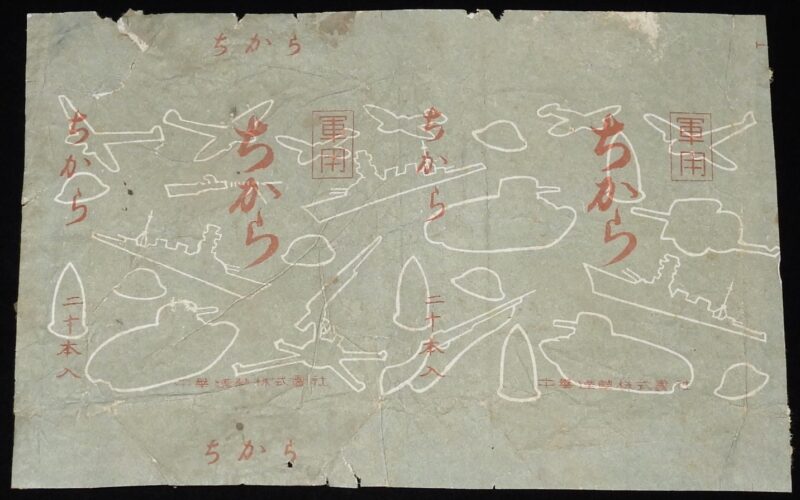 ちから
ちから
二十本入
ちから
軍用
中華煙草株式會社
ちから
二十本入
ちから
軍用
中華煙草株式會社
ちから